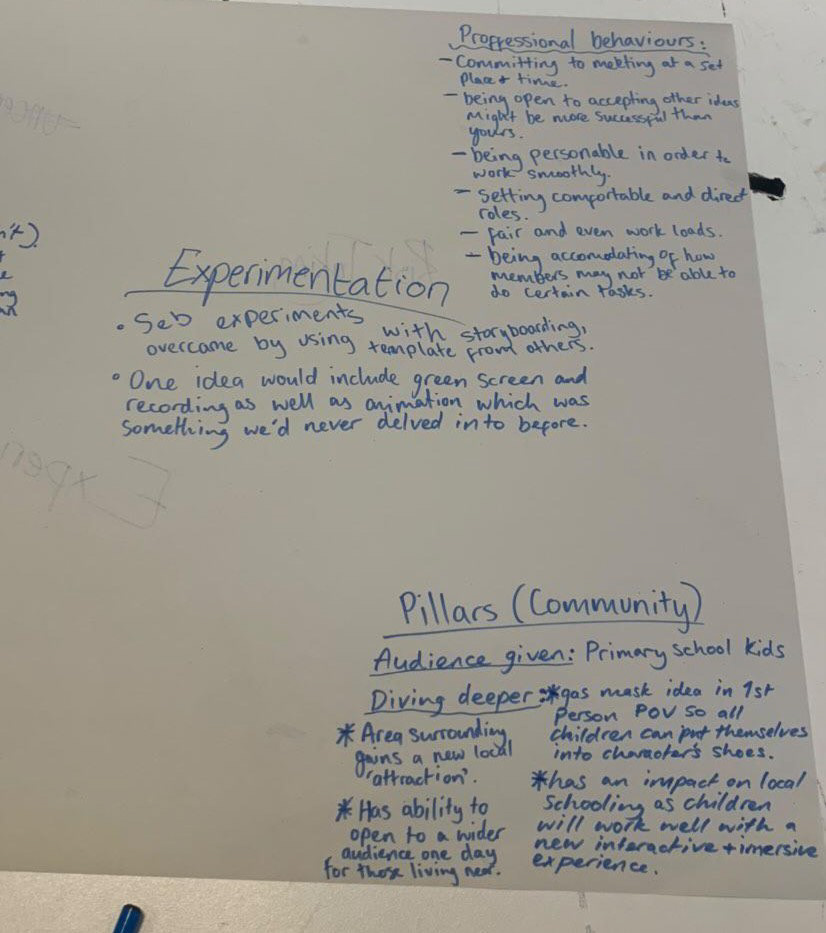 Proffessional behaviours:
- Committing to meeting at a set
place + time.
- being open to accepting other ideas
might be more successful than
yours.
- being personable in order to
work smoothly.
- setting comfortable and direct
roles.
- fair and even work loads.
- being accomodating of how
members may not be able to
do certain tasks.
Experimentation
• Seb experiments with storyboarding,
overcame by using template from others.
• One idea would include green screen and
recording as well as animation which was
something we'd never delved in to before.
Pillars (Community)
Audience given: Primary School Kids
Diving deeper:
* Area surrounding
gains a new local
'attraction'.
* Has ability to
open to a wider
audience one day
for those living near.
* gas mask idea in 1st
Person POV so all
children can put themselves
into character's shoes.
* has an impact on local
Schooling as children
will work well with a
new interactive + imersive
experience.